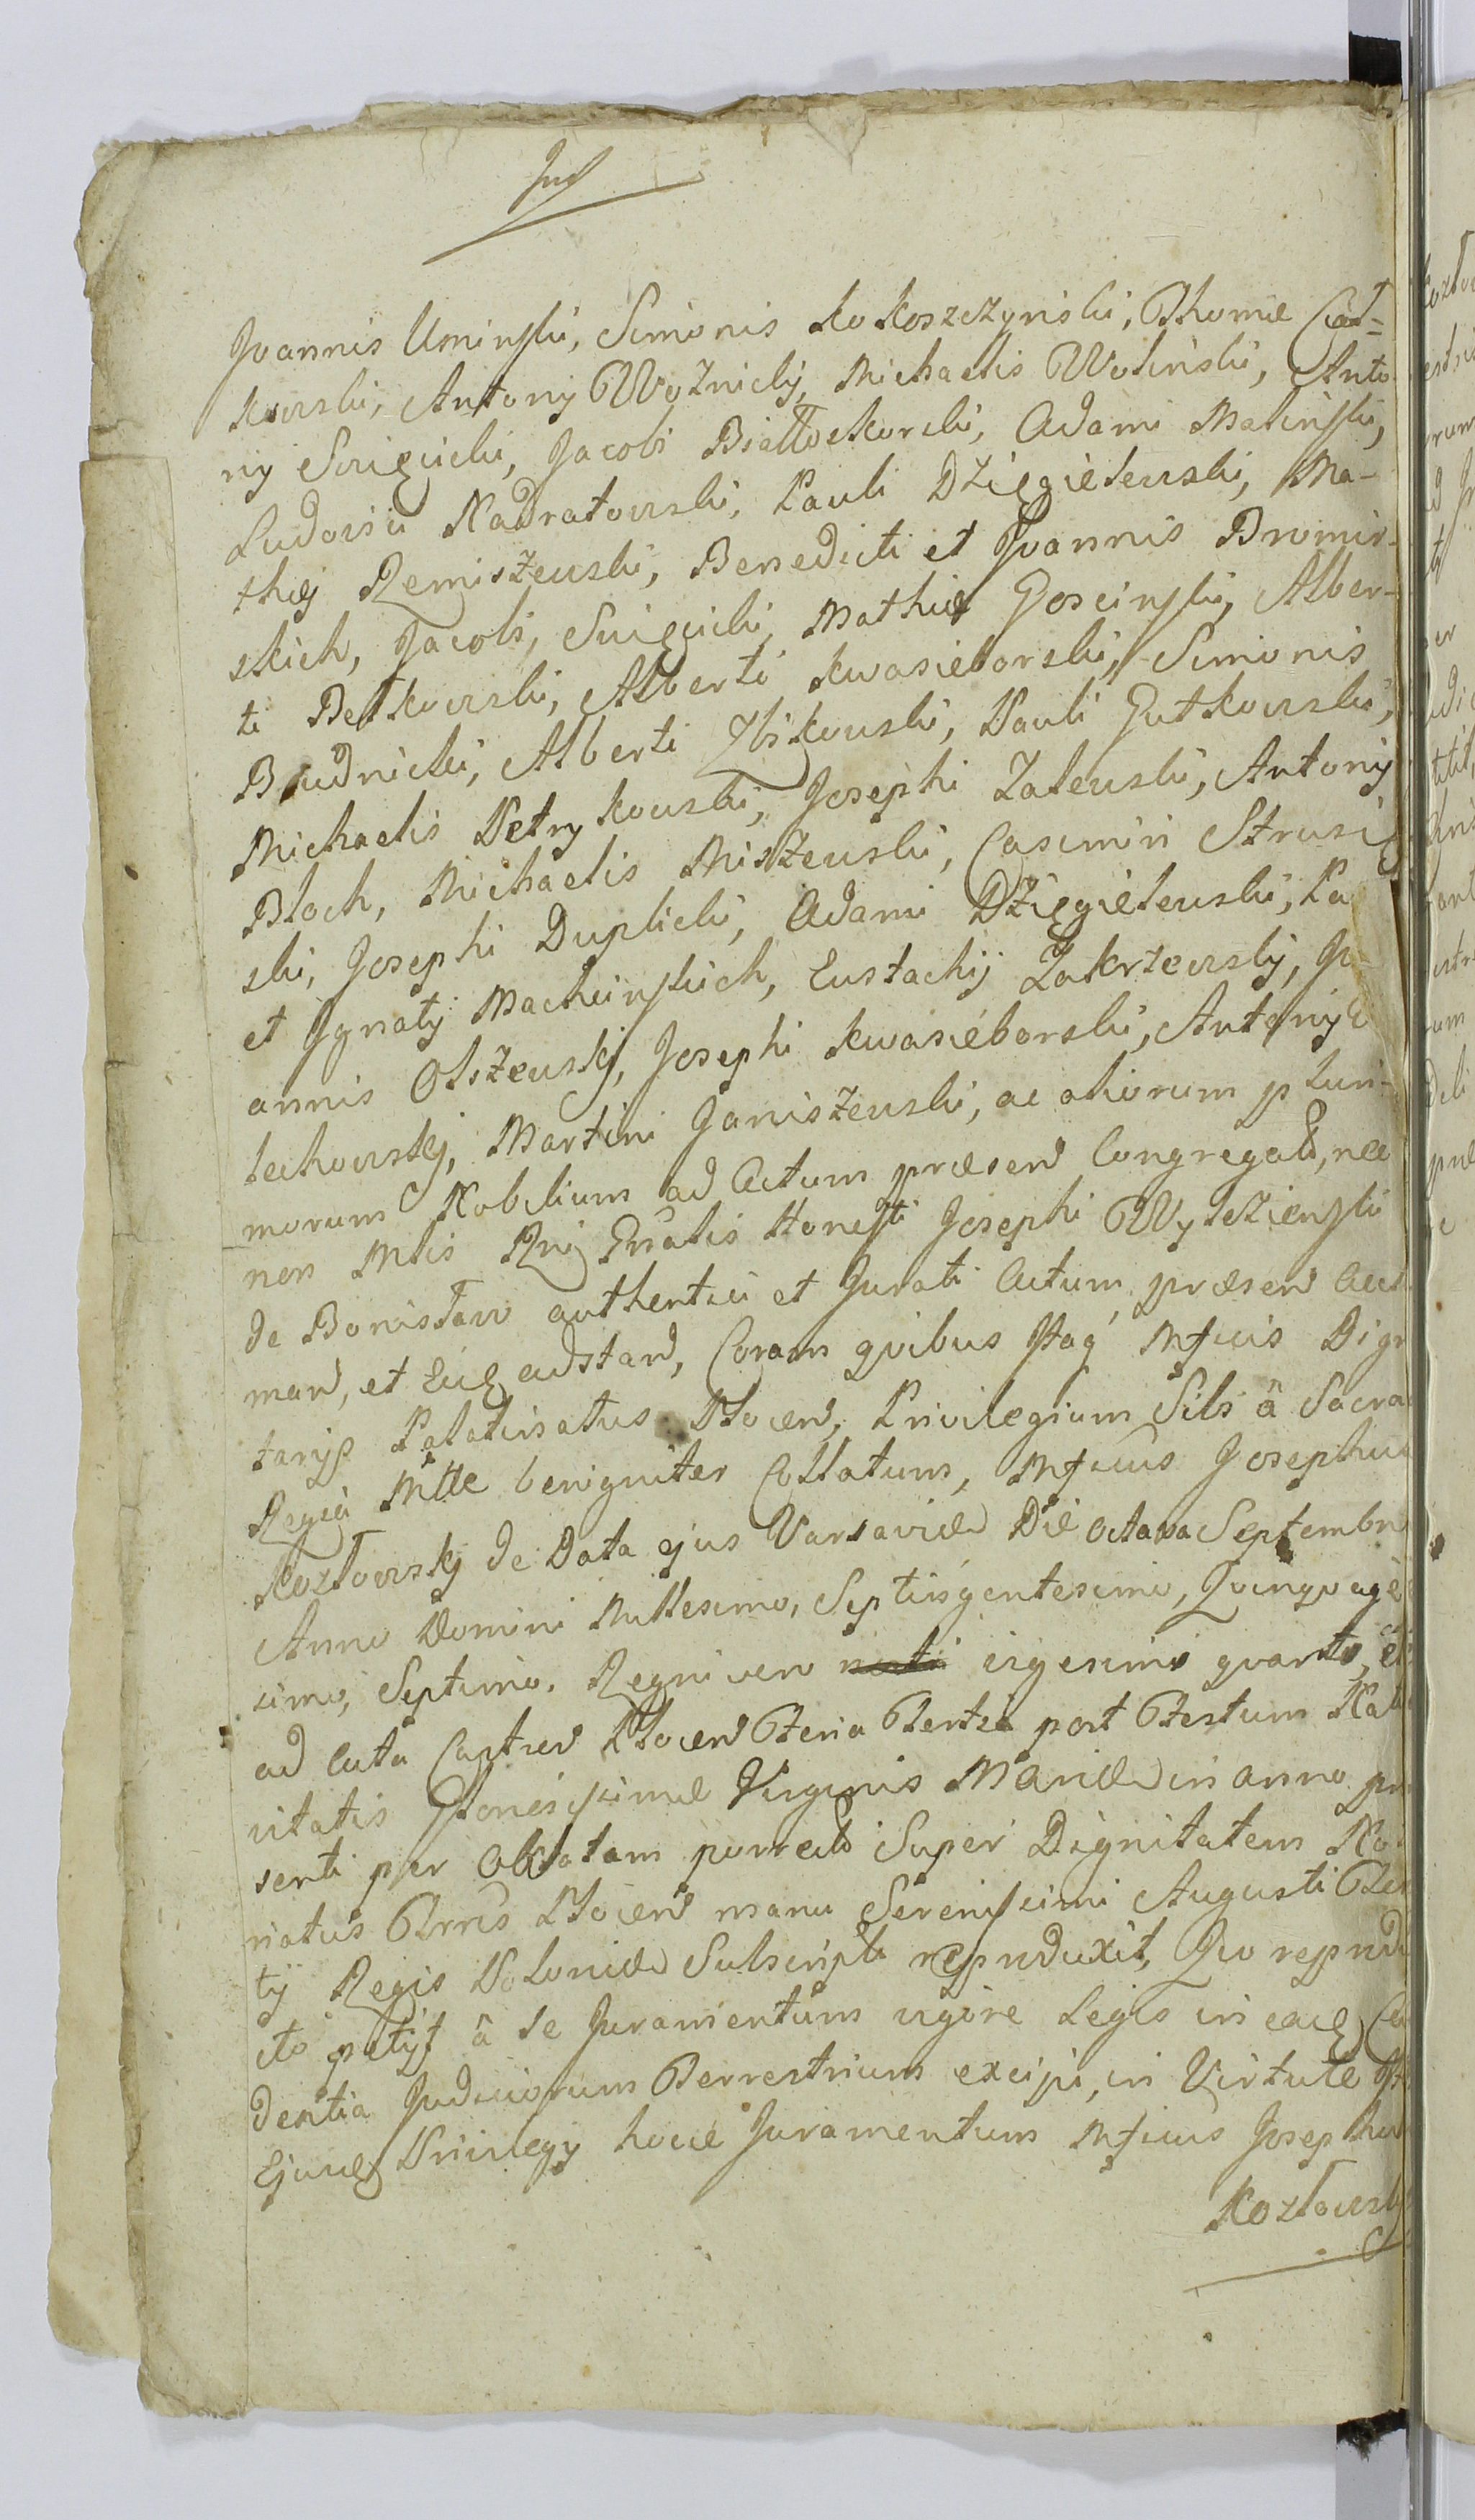 Joannis Uminski, Simonis Kokoszczynski, Thomæ Ciot=
kowski, Antonij Woznickij, Michaelis Wolinski, Anto
nij Swięcicki, Jacobi Białłoskorski, Adami Malinski,
Ludovici Nadratowski, Pauli Dzięgielewski, Ma-
thiej Remiszewski, Benedicti et Joannis Bromir-
skich, Jacobi, Swięcicki, Mathiæ Goscinski, Alber-
ti Betkowski, Alberti Kwasieborski, Simonis
Brudnicki, Alberti Zbikowski, Pauli Gutkowski,
Michaelis Petrykowski, Josephi Zalewski, Antonij
Bloch, Michaelis Miszewski, Casimiri
ski, Josephi Duplicki, Adami Dzięgielewski,
et Jgnatij Machcinskich, Eustachij Zakrzewskij, Jo-
annis Olszewskij, Josephi Kwasieborski, Antonij
lechowskij, Martini Janiszewski, ac aliorum pluri-
morum Nobilium ad Actum præsen Congregat, nec
non Mlis Rni Gnalis Honesti Josephi Wylezienski
de Bonisław authentici et Jurati Actum præsen
man, et adstan, Coram quibus Mficis
Palatinatus Plocen, Privilegium Sibi â Sacra
Regia Mtte benigniter Collatum, Mficus Josephus
Kozłowskij de Data ejus Varsaviæ Die octava Septembris
Anno Domini Millesimo, Septingentesimo, Quinquage
simo, Septimo. Regni vero vigesimo quarto, et
ad Acta Castren Plocen Feria Tertia post Festum Nati
vitatis Gloriosissimæ Virginis Mariæ in anno præ
senti per Oblatam porrect Super Dignitatem
natus Trris Plocen manu Serenissimi Augusti Ter
tij Regis Poloniæ Subscript reproduxit, Quo reprodu
cto petijt â se Juramentum vigore Legis in
dentia Judiciorum Terrestrium excipi, in Virtute
Ejusce Privilegij hocce Juramentum Mficus Josephus
Kozłowskij